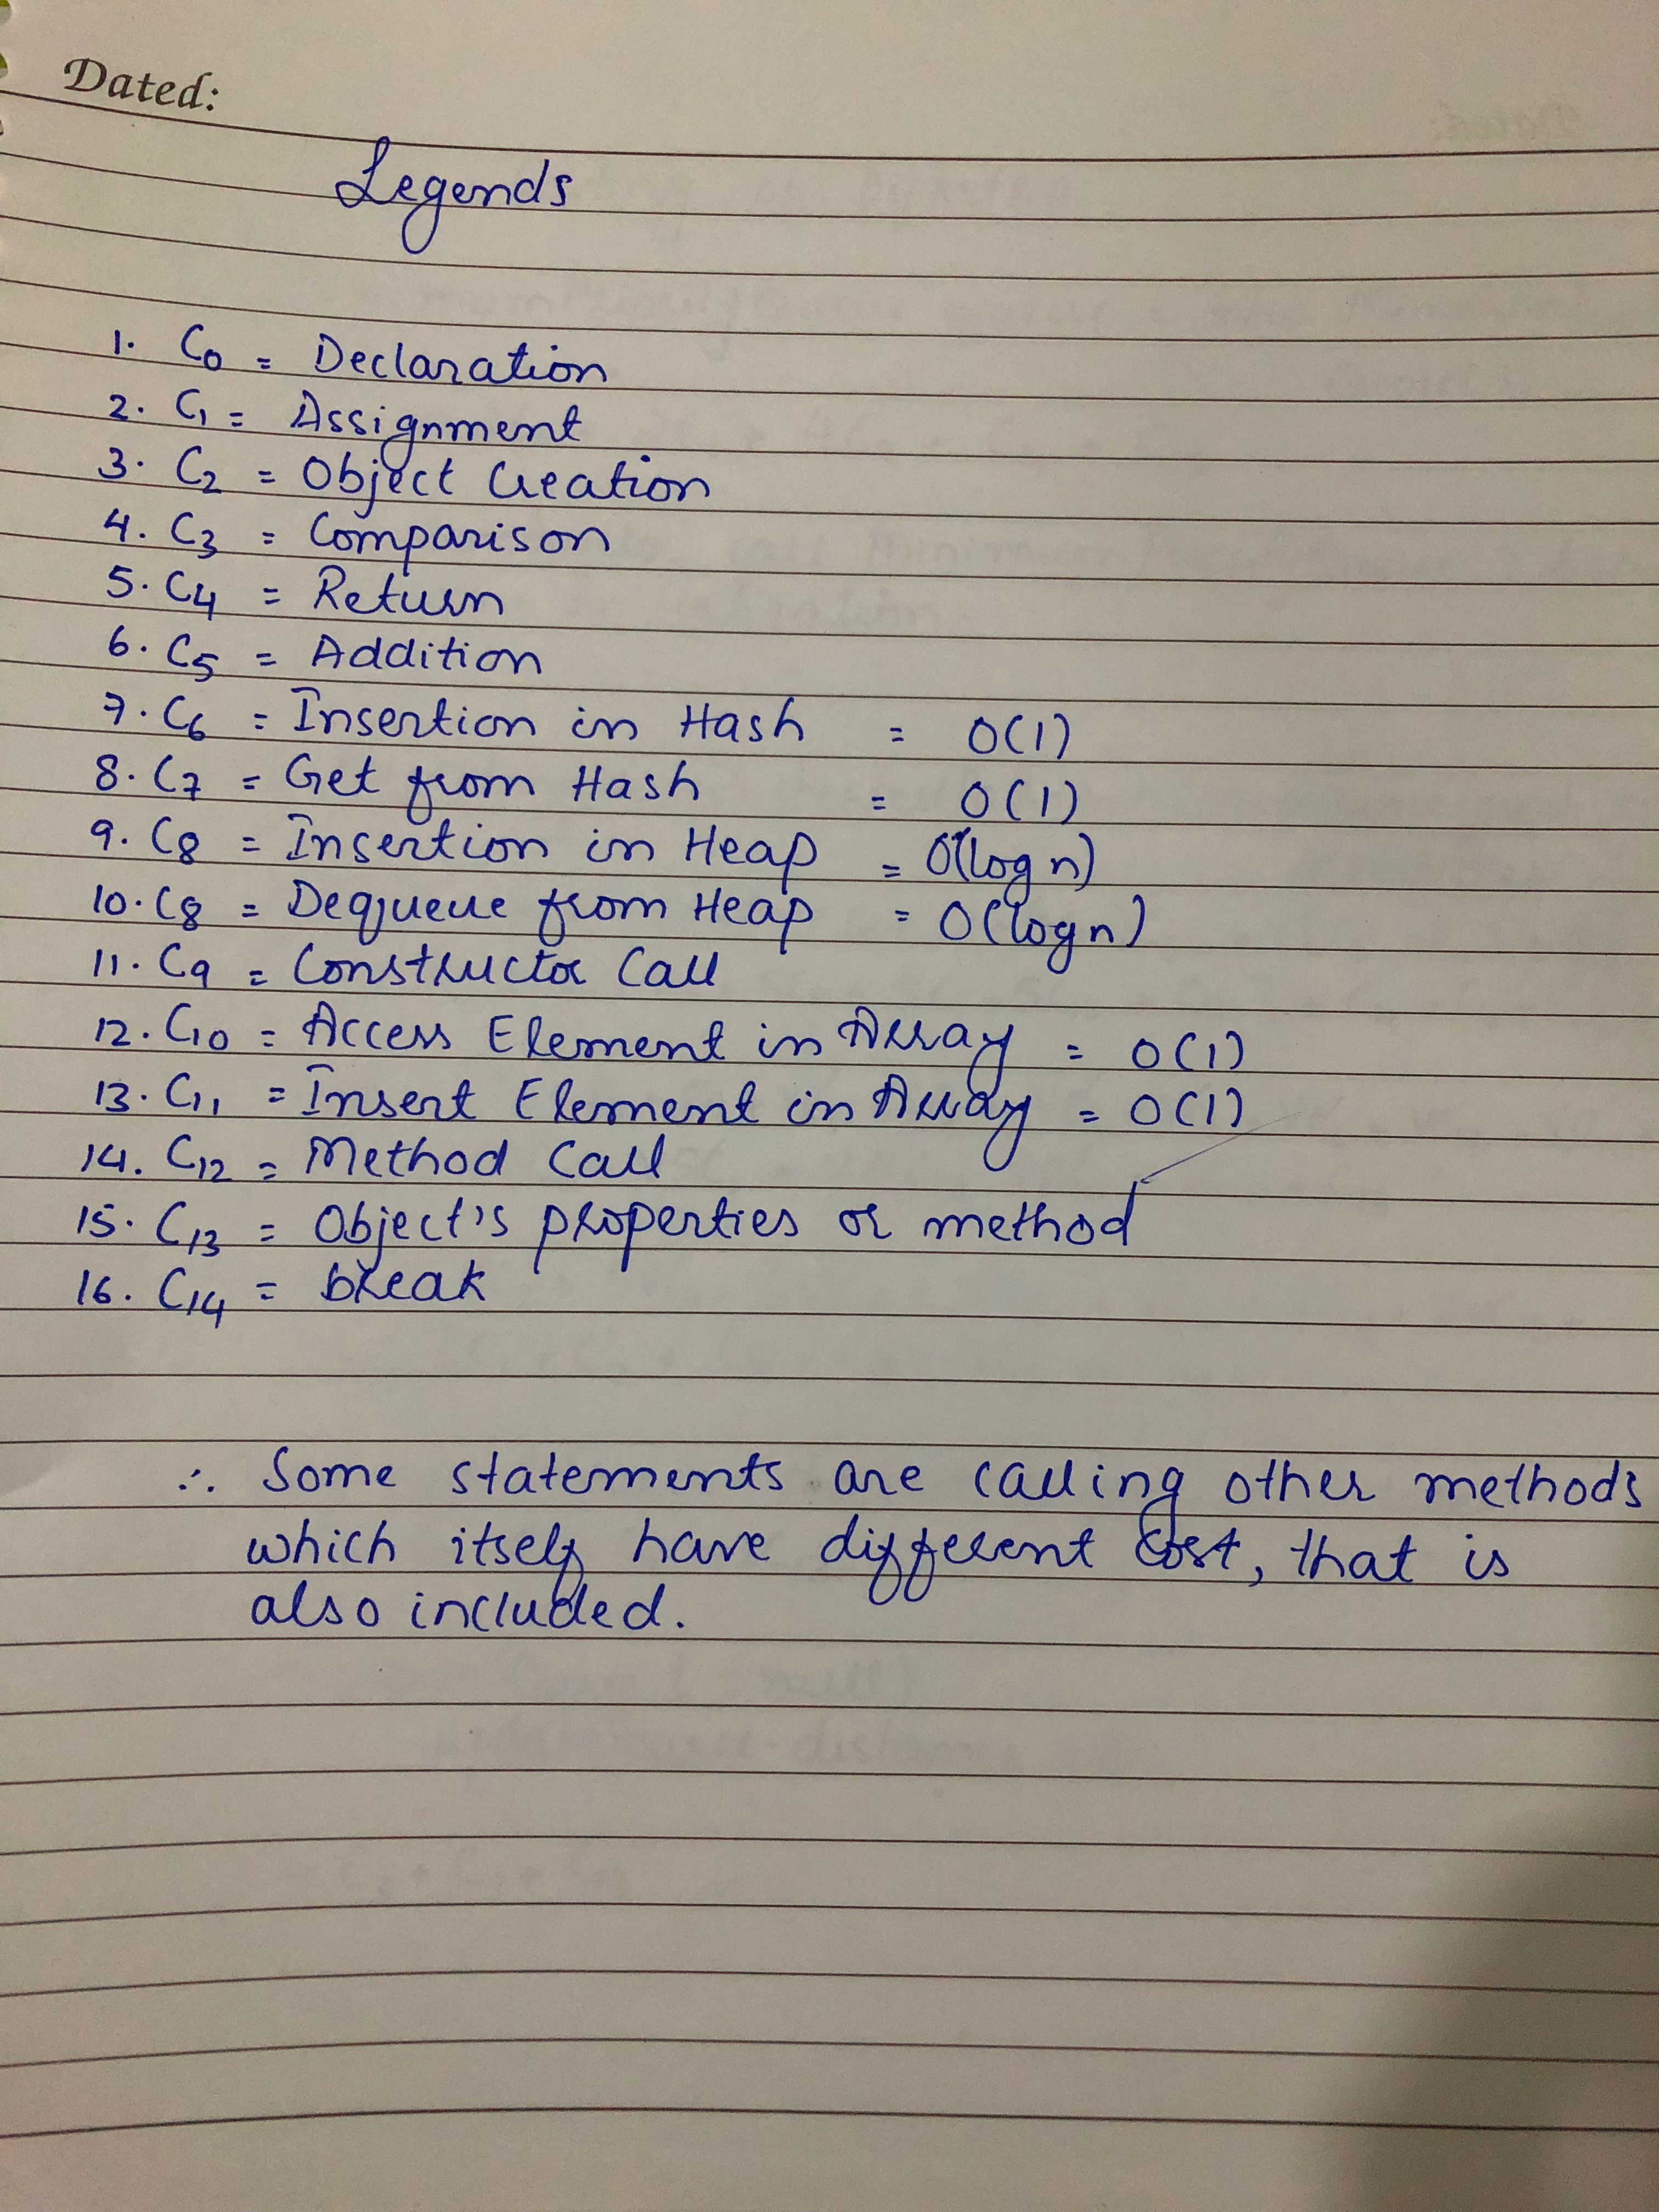 Dated:
Legends
1. C0 = Declaration
2. C1 = Assignment
3. C2 = Object Creation
4. C3 = Comparison
5. C4 = Return
6. C5 = Addition
7. C6 = Insertion in Hash = O(1)
8. C7 = Get from Hash = O(1)
9. C8 = Insertion in Heap = O(log n)
10. C8 = Dequeue from Heap = O(log n)
11. C9 = Constructor Call
12. C10 = Access Element in Array = O(1)
13. C11 = Insert Element in Array = O(1)
14. C12 = Method Call
15. C13 = Object's properties or method
16. C14 = break
∴ Some statements are calling other methods
which itself have different cost, that is
also included.